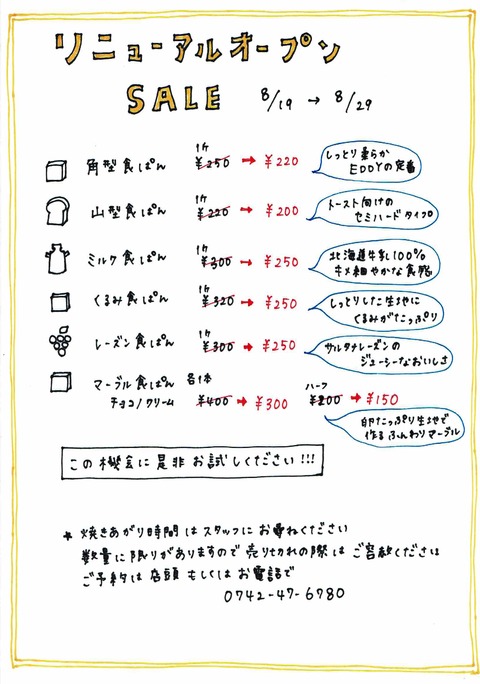 リニューアルオープン
SALE 8/19 → 8/29
角型食ぱん 1ケ ¥250 → ¥220
しっとり柔らか
EDDYの定番
山型食ぱん 1ケ ¥220 → ¥200
トースト向けの
セミハードタイプ
ミルク食ぱん 1ケ ¥300 → ¥250
北海道牛乳100%
キメ細やかな食感
くるみ食ぱん 1ケ ¥320 → ¥250
しっとりした生地に
くるみがたっぷり
レーズン食ぱん 1ケ ¥300 → ¥250
サルタナレーズンの
ジューシーなおいしさ
マーブル食ぱん 各1本 ハーフ
チョコ/クリーム ¥400 → ¥300 ¥200 → ¥150
卵たっぷり生地で
作るふんわりマーブル
この機会に是非お試しください!!!
★焼きあがり時間はスタッフにお尋ねください
数量に限りがありますので売り切れの際はご容赦くださいませ
ご予約は店頭もしくはお電話で
0742-47-6780